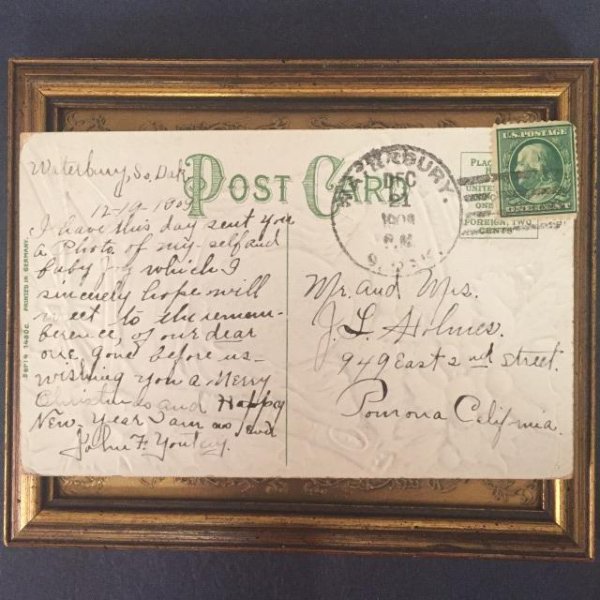 Waterbury, So. Dak
12-19-1909
I have this day sent you
a Photo of my-self and
baby Joy which I
sincerely hope will
meet to the remem-
berence, of our dear
one, gone before us-
wishing you a Merry
Christmas and Happy
New-Year I am as ever
John F.
POST CARD
WATERBURY.
DEC
21
S. DAK.
U.S. POSTAGE
ONE CENT
PLACE
UNITED
ONE
FOREIGN, TWO
CENTS
Mr. and Mrs.
J. L. Holmes.
949 East 2nd street.
Pomona California.
PRINTED IN GERMANY.